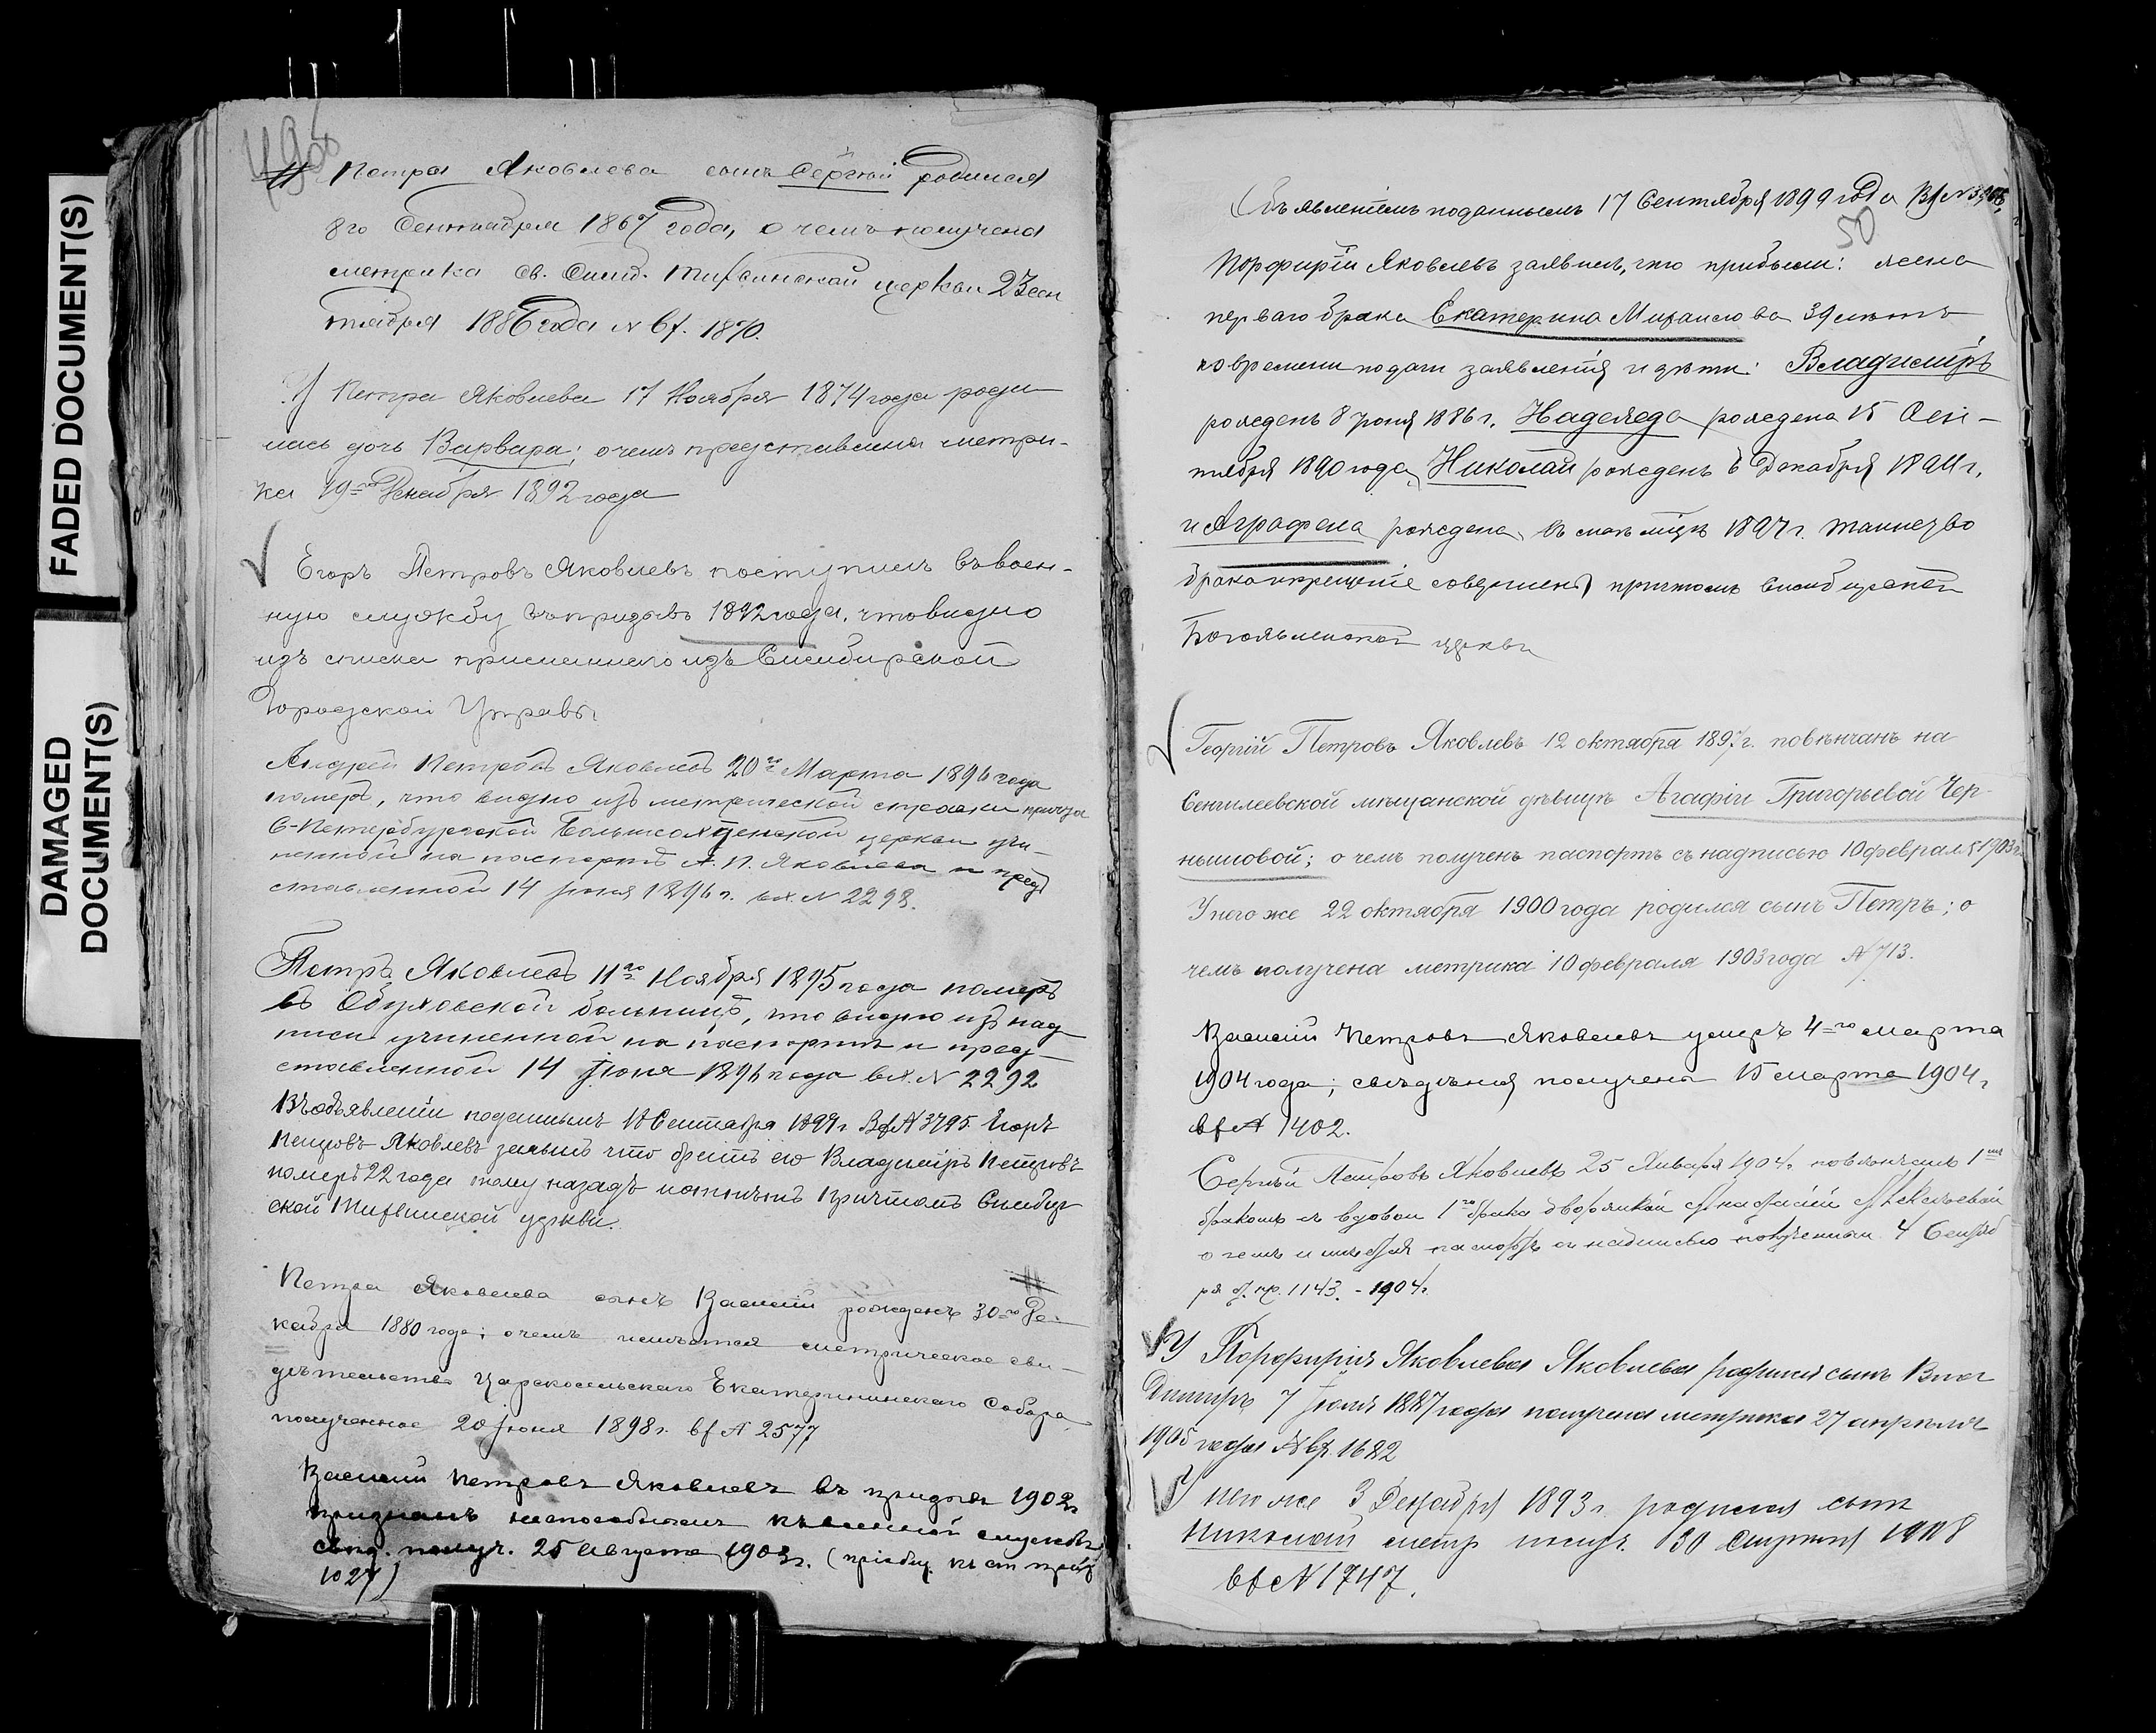 FADED DOCUMENT(S)
DAMAGED
DOCUMENT(S)
Петра Яковлева сынъ Сергѣй родился
8го Сентября 1867 года, о чемъ получена
метрика св. Симб. Тихвинской церкви 23 сен
тября 1886 года N вх. 1870.
У Петра Яковлева 17 Ноября 1874 года роди
лась дочь Варвара; о чемъ представлена метри-
ка 19го Декабря 1892 года
Егоръ Петровъ Яковлевъ поступилъ въ воен-
ную службу въ призывъ 1892 года, что видно
изъ списка присланнаго изъ Симбирской
Городской Управы.
Андрей Петровъ Яковлевъ 20го Марта 1896 года
померъ, что видно изъ метрической справки причта
С-Петербургской церкви учи-
ненной на паспортѣ А. П. Яковлева и пред
ставленной 14 Іюня 1896 г. вх. N 2298.
Петръ Яковлевъ 11го Ноября 1895 года померъ
въ Обуховской больницѣ, что видно изъ над
писи учиненной на паспортѣ и пред-
ставленной 14 Іюня 1896 года вх. N 2292
Въ объявленіи поданнымъ 18 Сентября 1897 г. Вх N 3795 Егоръ
Петровъ Яковлевъ что братъ его Владиміръ Петровъ
померъ 22 года тому назадъ причтомъ Симбир
ской Тихвинской церкви.
Петра Яковлева сынъ Василій рожденъ 30го Де-
кабря 1880 года; о чемъ имѣется метрическое сви-
дѣтельство Царскосельскаго Екатерининскаго Собора
полученное 20 Іюня 1898 г. вх N 2577
Василій Петровъ Яковлевъ въ призывъ 1902 г
признанъ неспособнымъ къ военной службѣ
свид. получ. 25 Августа 1903 г. (
1027)
Объявленіемъ поданнымъ 17 Сентября 1899 года Вх N
50
Порфирій Яковлевъ заявилъ, что прибыли: жена
перваго брака Екатерина Михайлова 39 лѣтъ
ко времени подачи заявленія и дѣти: Владиміръ
рожденъ 8 Іюня 1886 г. Надежда рождена 15 Сен-
тября 1890 года, Николай рожденъ 6 Декабря
и Аграфена рождена въ 1897 г. таинство
брака и крещеніе совершены причтомъ Симбирской
Богоявленской церкви
Георгій Петровъ Яковлевъ 12 октября 1897 г. повѣнчанъ на
Сенгилеевской мѣщанской дѣвицѣ Агафіи Григорьевой Чер-
нышовой; о чемъ полученъ паспортъ съ надписью 10 февраля 1903 г.
У него же 22 октября 1900 года родился сынъ Петръ; о
чемъ получена метрика 10 февраля 1903 года N 713.
Василій Петровъ Яковлевъ умеръ 4го марта
1904 года; свѣдѣнія получена 15 марта 1904 г
вх N 1402.
Сергѣй Петровъ Яковлевъ 25 Января 1904 г. повѣнчанъ 1мъ
бракомъ съ вдовой 1го брака дворянкой Алексѣевой
о чемъ имѣется паспортъ съ надписью полученный 4 Сентяб
ря 1143 - 1904 г.
У Порфирія Яковлева Яковлева родился сынъ Вла
диміръ 7 Іюля 1887 года получена метрика 27 апрѣля
1905 года N вх. 1682
У него же 3 Декабря 1893 г. родился сынъ
Николай метр получ. 30 1908
вх N 1747.